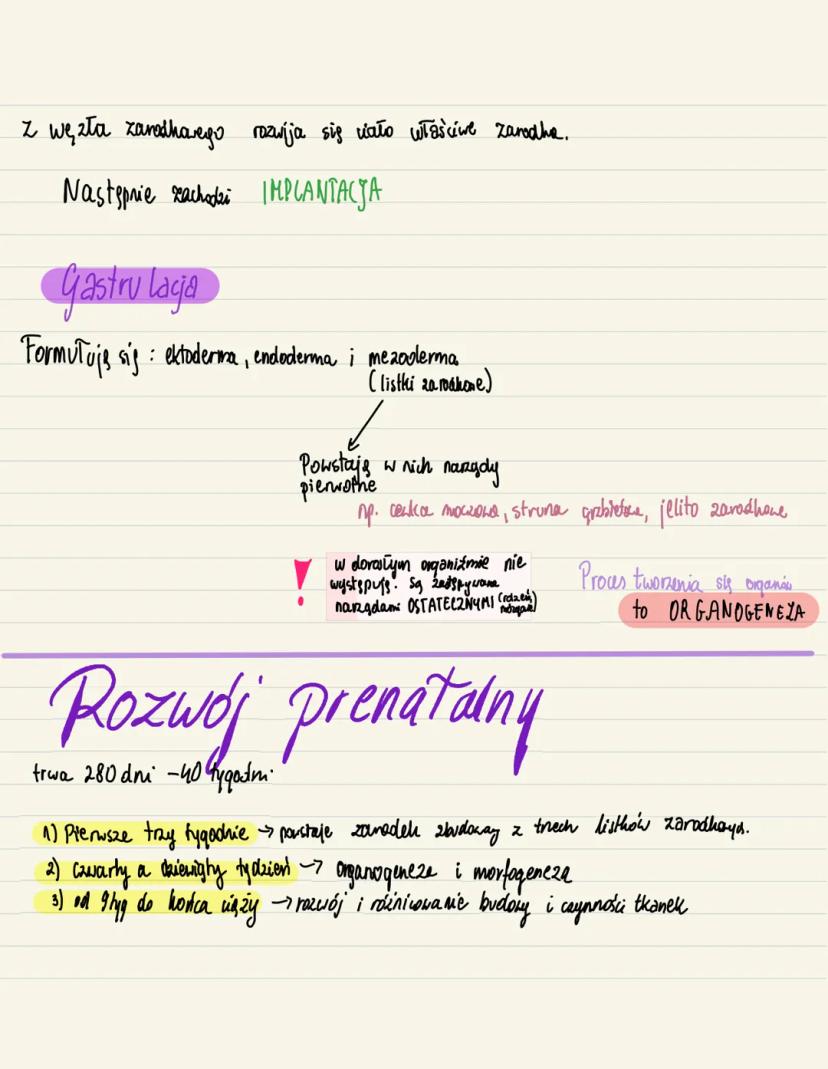 Z węzła zarodkowego rozwija się ciało właściwe zarodka.
Następnie zachodzi IMPLANTACJA
Gastrulacja
Formułują się : ektoderma, endoderma i mezoderma
(listki zarodkowe)
Powstają w nich narządy
pierwotne
np. cewka moczowa, struna grzbietowa, jelito zarodkowe
! w dorosłym organiźmie nie
występują. Są zastępowane
narządami OSTATECZNYMI (rdzeń
Proces tworzenia się organów
to ORGANOGENEZA
Rozwój prenatalny
trwa 280 dni - 40 tygodni
1) Pierwsze trzy tygodnie → powstaje zarodek zbudowany z trzech listków zarodkowych.
2) Czwarty a dziewiąty tydzień → organogeneza i morfogeneza
3) od 9tyg do końca ciąży → rozwój i różnicowanie budowy i czynności tkanek